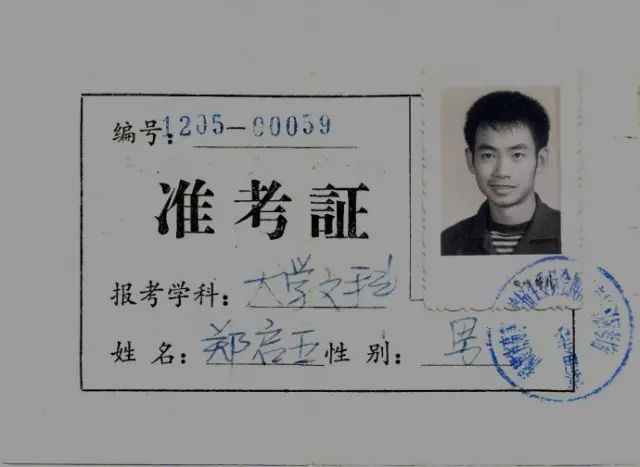 编号：1205-00059
准考証
报考学科：大学文科
姓名：郑启五 性别：男